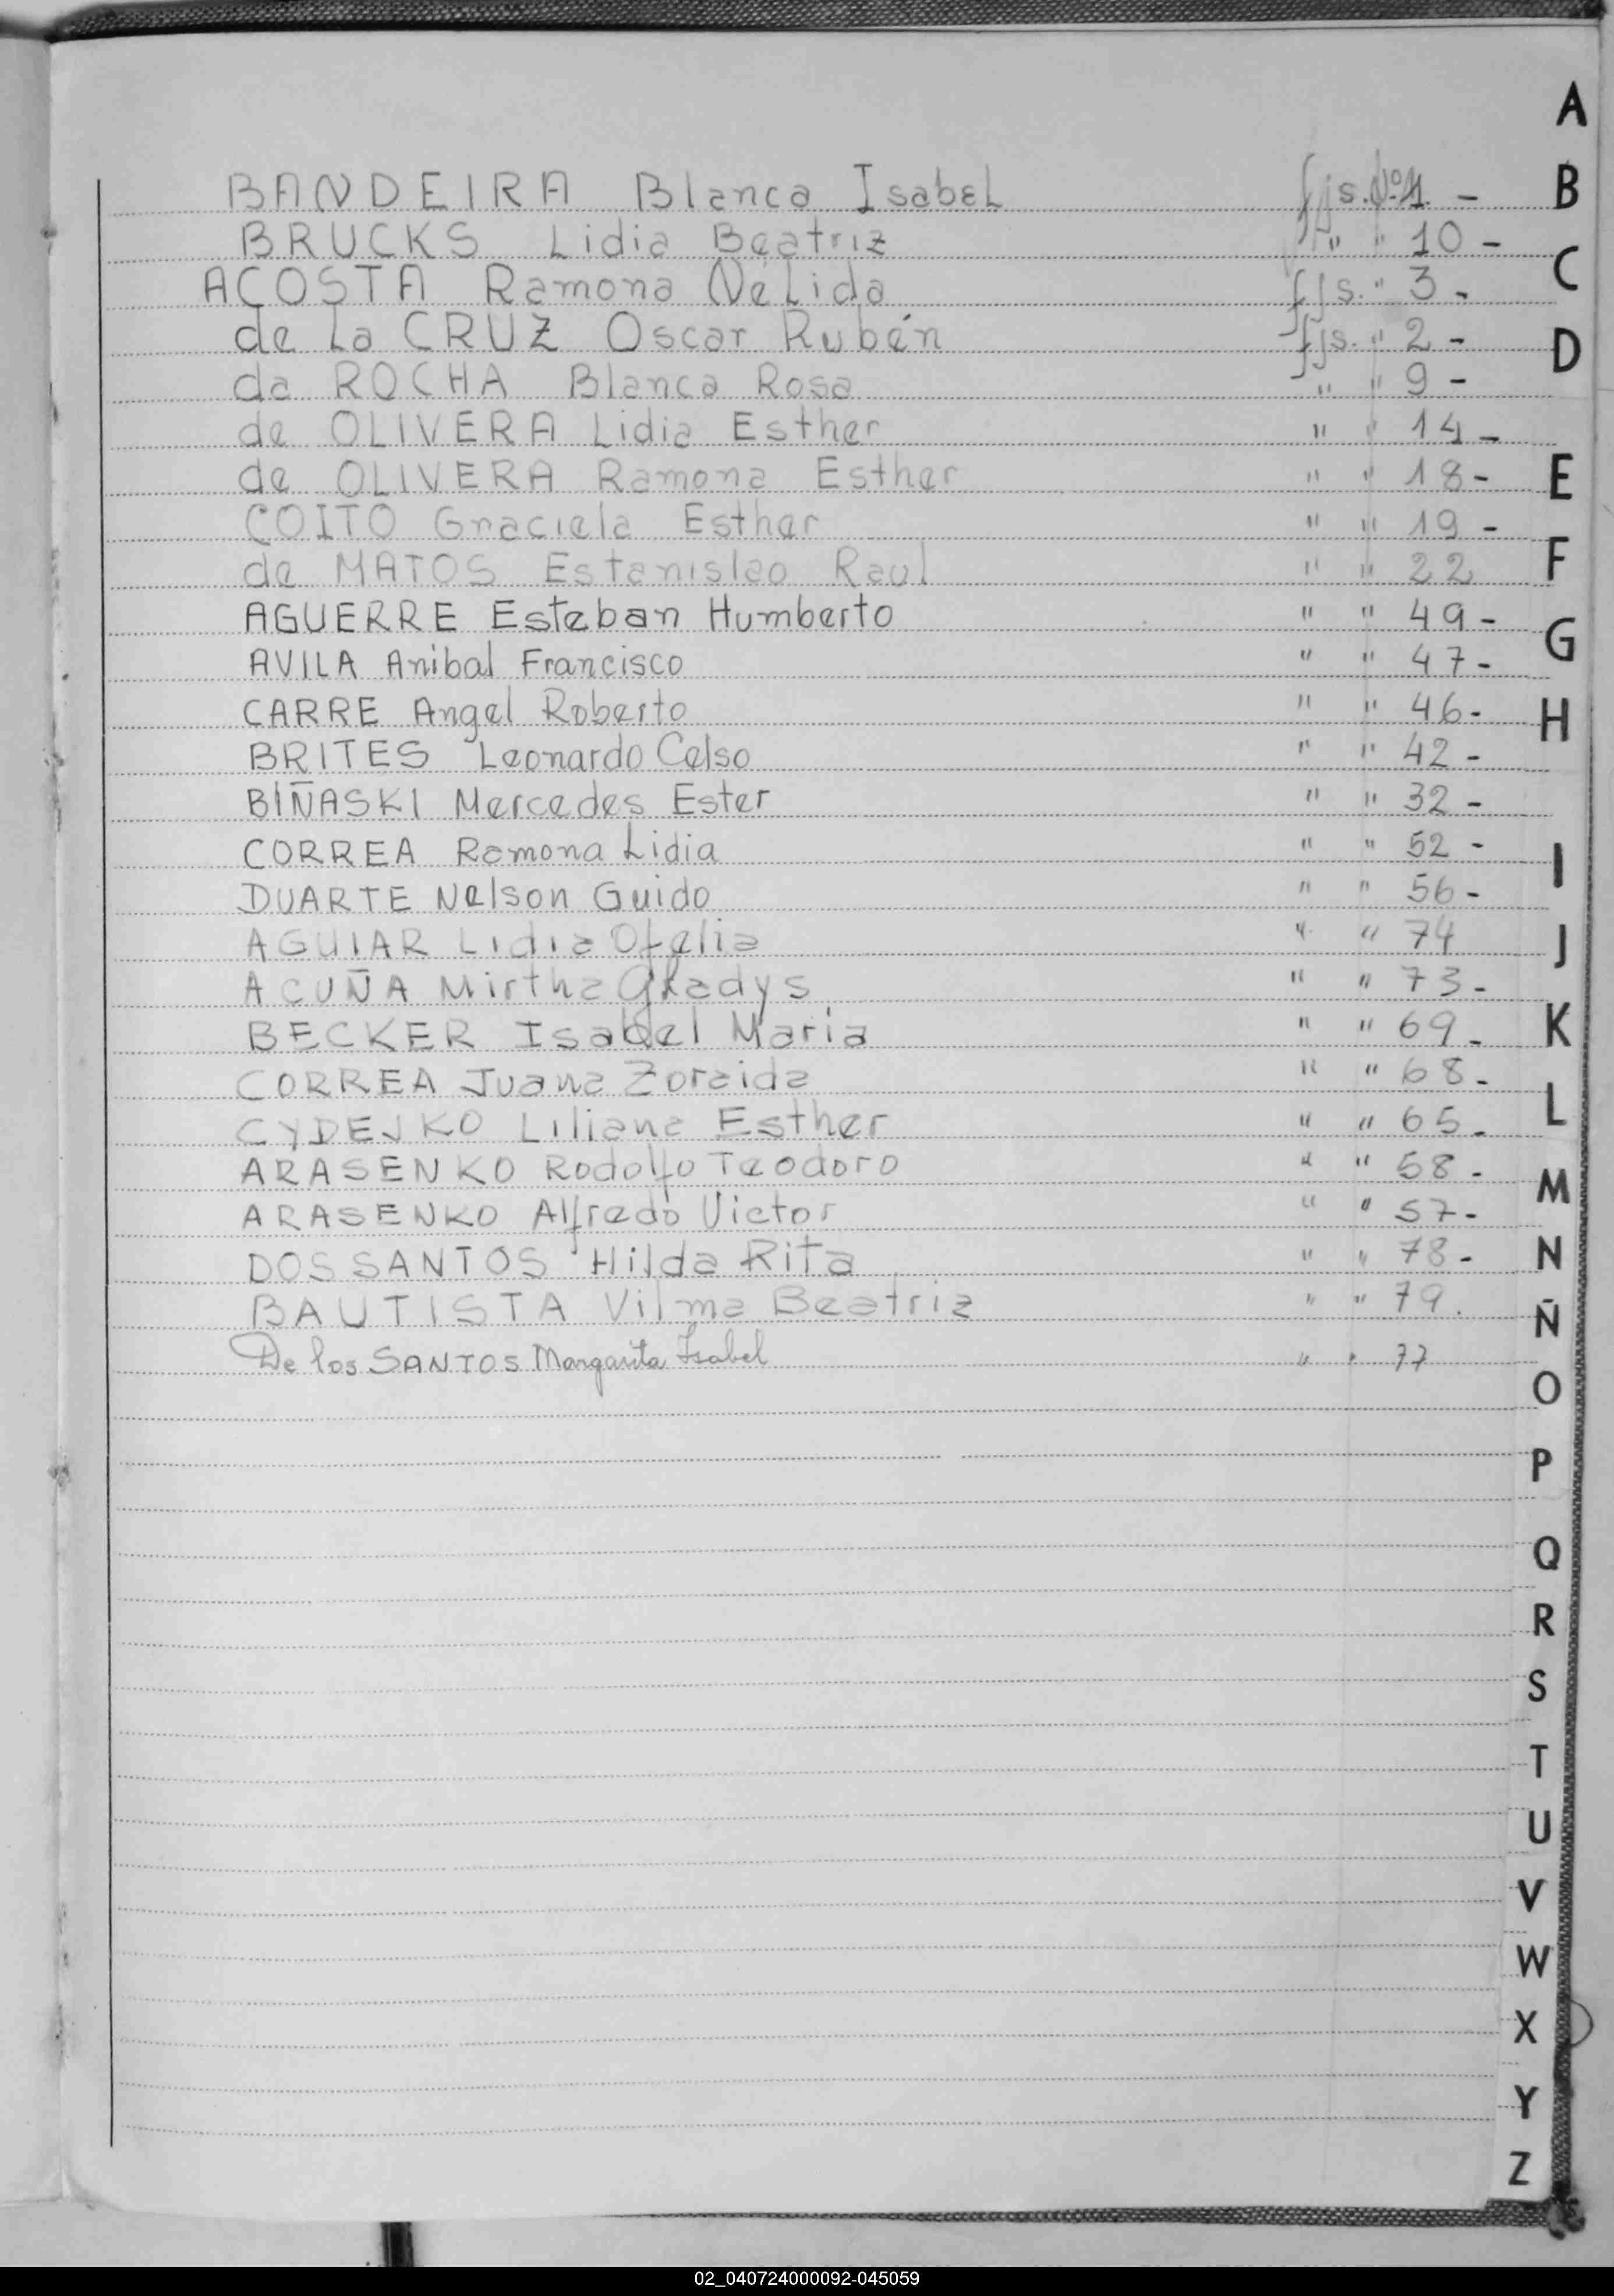 BANDEIRA Blanca Isabel fjs. Nº 1. -
BRUCKS Lidia Beatriz " " 10 -
ACOSTA Ramona Nélida fjs. " 3 -
de La CRUZ Oscar Rubén fjs. " 2 -
da ROCHA Blanca Rosa " " 9 -
de OLIVERA Lidia Esther " " 14 -
de OLIVERA Ramona Esther " " 18 -
COITO Graciela Esther " " 19 -
de MATOS Estanislao Raul " " 22
AGUERRE Esteban Humberto " " 49 -
AVILA Anibal Francisco " " 47 -
CARRE Angel Roberto " " 46 -
BRITES Leonardo Celso " " 42 -
BIÑASKI Mercedes Ester " " 32 -
CORREA Ramona Lidia " " 52 -
DUARTE Nelson Guido " " 56 -
AGUIAR Lidia Ofelia " " 74
ACUÑA Mirtha Gladys " " 73 -
BECKER Isabel Maria " " 69 -
CORREA Juana Zoraida " " 68 -
CYDEJKO Liliana Esther " " 65 -
ARASENKO Rodolfo Teodoro " " 58 -
ARASENKO Alfredo Victor " " 57 -
DOS SANTOS Hilda Rita " " 78 -
BAUTISTA Vilma Beatriz " " 79.
De los SANTOS Margarita Isabel " " 77
A
B
C
D
E
F
G
H
I
J
K
L
M
N
Ñ
O
P
Q
R
S
T
U
V
W
X
Y
Z
02_040724000092-045059